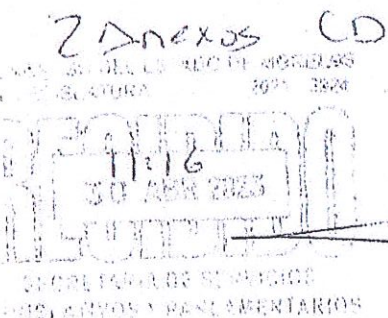 2 Anexos CD
DEL ESTADO DE MORELOS
LEGISLATURA 2021 2024
RECIBIDO
11:16
30 ABR 2023
SECRETARIA DE SERVICIOS
LEGISLATIVOS Y PARLAMENTARIOS